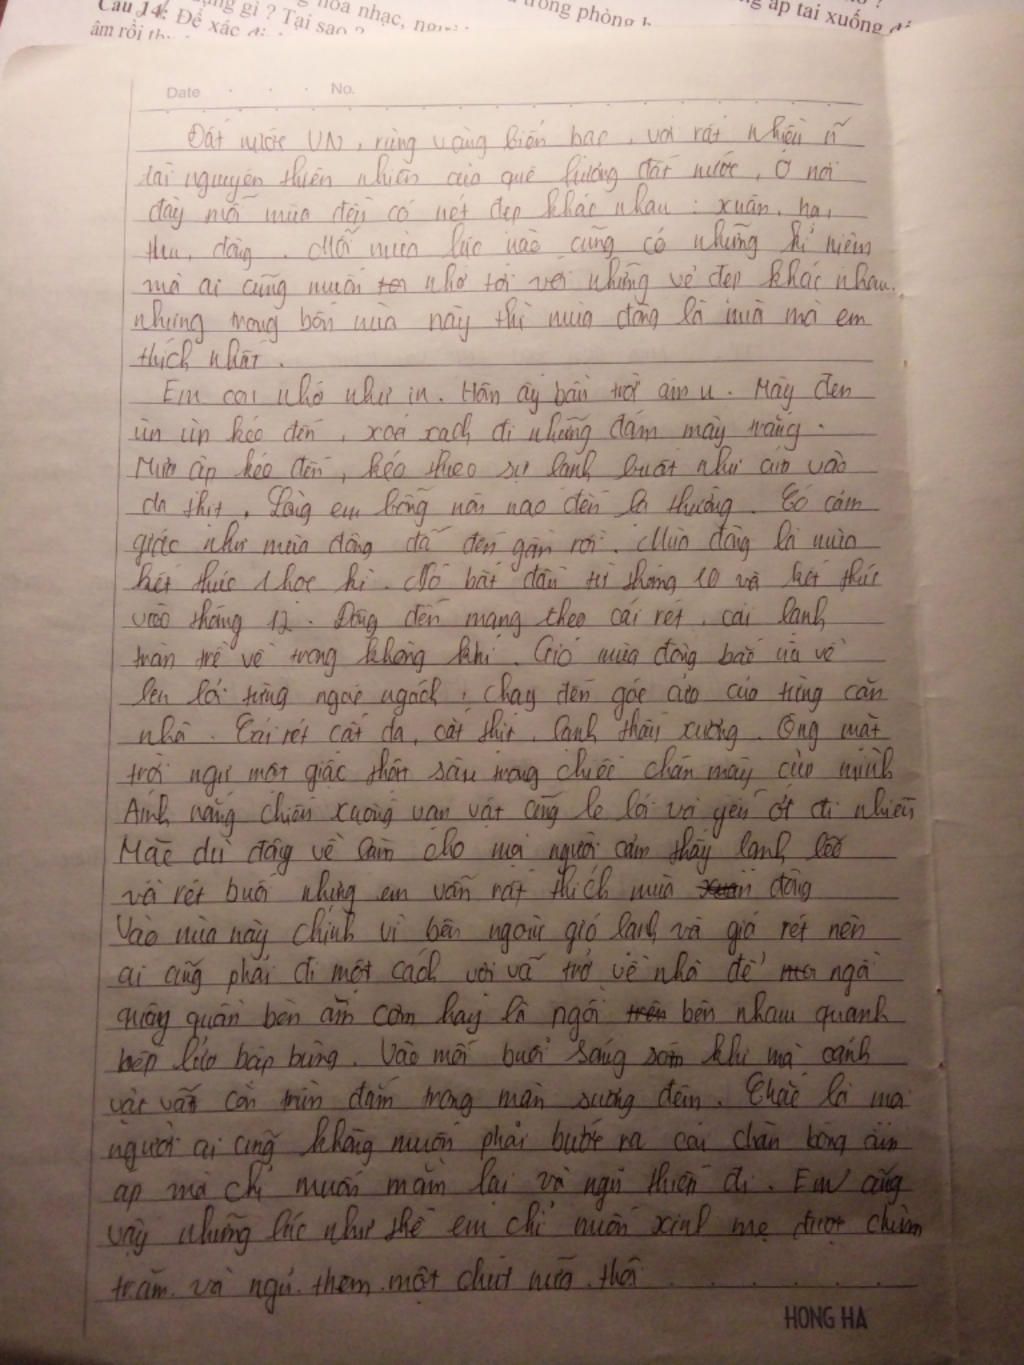 ụng gì ? Tại sao ?
hòa nhạc,
trong phòng
áp tai xuống
Câu 14: Để xác đị
âm rồi
Date No.
Đất nước VN, rừng vàng biển bạc, với rất nhiều
tài nguyên thiên nhiên của quê hương đất nước, Ở nơi
đây mỗi mùa đều có nét đẹp khác nhau : xuân, hạ,
thu, đông. Mỗi mùa lúc nào cũng có những kỉ niệm
mà ai cũng muốn nhớ tới với những vẻ đẹp khác nhau.
nhưng trong bốn mùa này thì mùa đông là mùa mà em
thích nhất.
Em còn nhớ như in. Hôm ấy bầu trời âm u. Mây đen
ùn ùn kéo đến, xoá sạch đi những đám mây trắng.
Mưa ập kéo đến, kéo theo sự lạnh buốt như cứa vào
da thịt, Lòng em bỗng nôn nao đến lạ thường. Có cảm
giác như mùa đông đã đến gần rồi. Mùa đông là mùa
kết thúc 1 học kì. Nó bắt đầu từ tháng 10 và kết thúc
vào tháng 12. Đông đến mang theo cái rét, cái lạnh
tràn trề về trong không khí. Gió mùa đông bắc ùa về
len lỏi từng ngóc ngách, chạy đến góc của từng căn
nhà. Cái rét cắt da, cắt thịt, lạnh thấu xương. Ông mặt
trời ngủ một giấc thật sâu trong chiếc chăn mây của mình
Ánh nắng chiếu xuống vạn vật cũng le lói và yếu ớt đi nhiều
Mặc dù đông về làm cho mọi người cảm thấy lạnh lẽo
và rét buốt nhưng em vẫn rất thích mùa xuân đông
Vào mùa này chính vì bên ngoài gió lạnh và giá rét nên
ai cũng phải đi một cách vội vã trở về nhà để ngồi
quây quần bên ấm cơm hay là ngồi trên bên nhau quanh
bếp lửa bập bùng. Vào mỗi buổi sáng sớm khi mà cảnh
vật vẫn còn chìm đắm trong màn sương đêm. Chắc là mọi
người ai cũng không muốn phải bước ra cái chăn bông ấm
áp mà chỉ muốn nằm lại và ngủ thiếp đi. Em cũng
vậy những lúc như thế em chỉ muốn xinh mẹ được chùm
trăm và ngủ thêm một chút nữa thôi
HONG HA